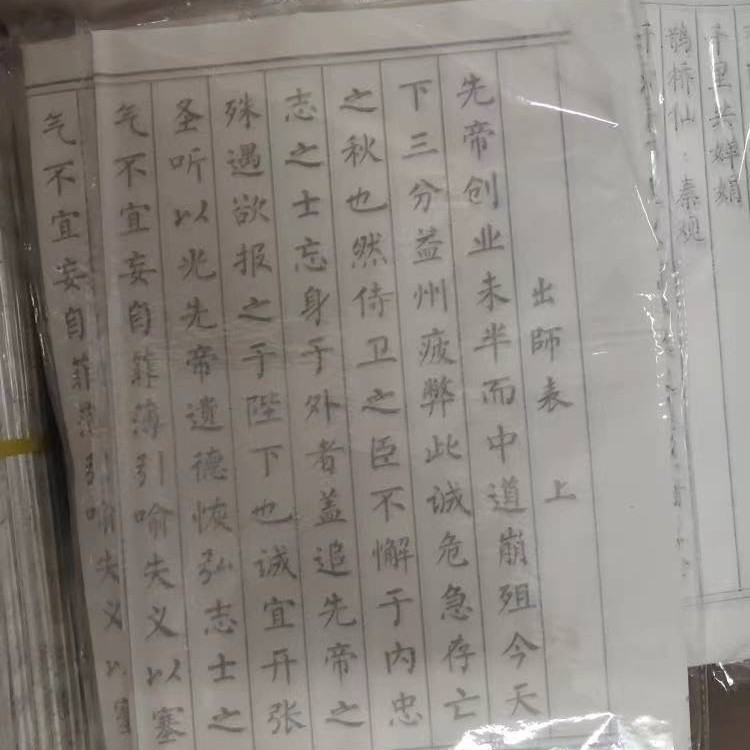 千里共婵娟
鹊桥仙：秦观
出師表 上
先帝创业未半而中道崩殂今天
下三分益州疲弊此诚危急存亡
之秋也然侍卫之臣不懈于内忠
志之士忘身于外者盖追先帝之
殊遇欲报之于陛下也诚宜开张
圣听以光先帝遗德恢弘志士之
气不宜妄自菲薄引喻失义以塞
气不宜妄自菲薄引喻失义以塞